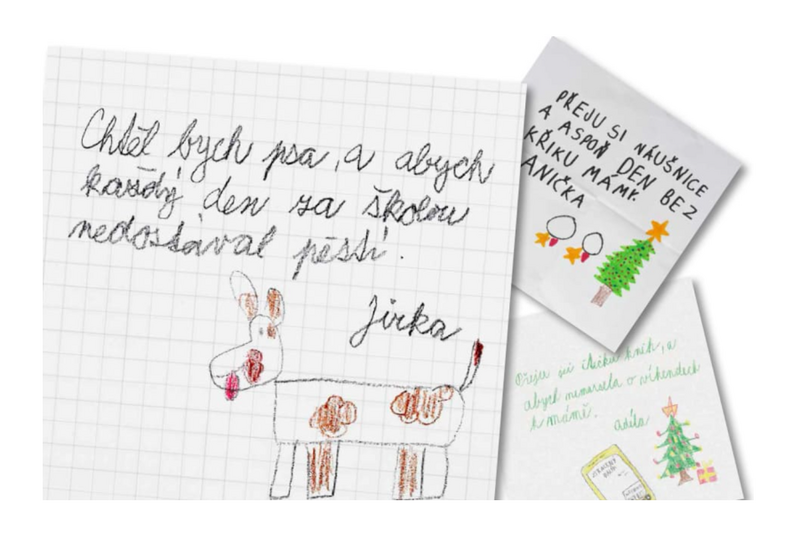 Chtěl bych psa, a abych
každý den za školou
nedostával pěstí.
Jirka
PŘEJU SI NÁUŠNICE
A ASPOŇ DEN BEZ
KŘIKU MÁMY.
ANIČKA
Přeju si čtečku knih, a
abych nemusela o víkendech
k mámě.
Adéla